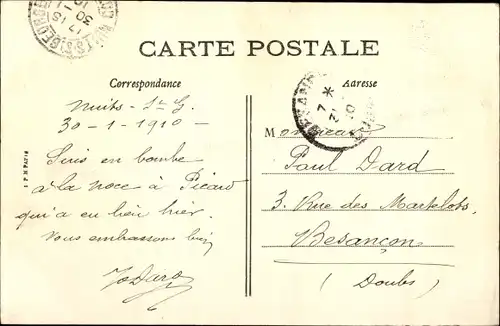 CARTE POSTALE
Correspondance
Adresse
Nuits-St G.
30-1-1910-
Suis en bombe
à la noce à Picard
qui a eu lieu hier.
Vous embrassons bien
Dard
Monsieur
Paul Dard
3, Rue des Martelots,
Besançon
(Doubs)